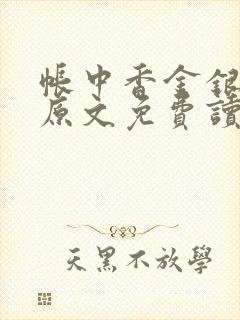 帳中香金銀
原文免費讀
天黑不放學